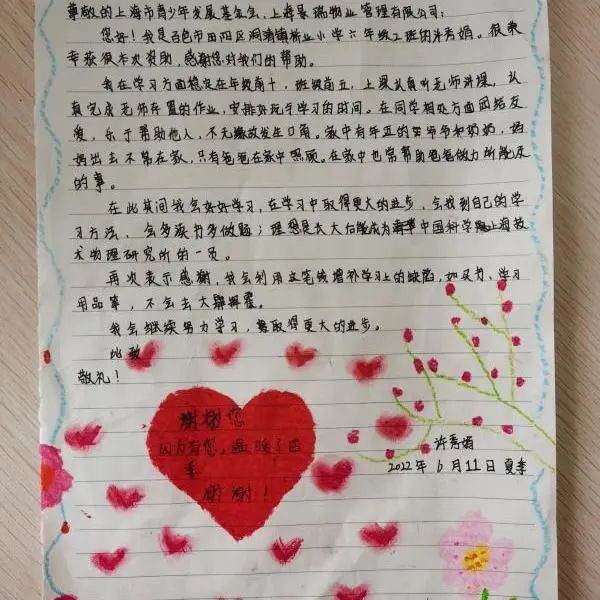 尊敬的上海市青少年发展基金会、上海晨瑞物业管理有限公司:
您好!我是百色市田阳区洞靖镇桥业小学六年级2班的许秀娟。很荣
幸获得本次资助,感谢您对我们的帮助。
我在学习方面稳定在年级前十,班级前五,上课认真听老师讲课,认
真完成老师布置的作业,安排好玩与学习的时间。在同学相处方面团结友
爱,乐于帮助他人,不无缘故发生口角。家中有年迈的爷爷和奶奶,妈
妈出去不常在家,只有爸爸在家中照顾。在家中也常帮助爸爸做力所能及
的事。
在此其间我会好好学习,在学习中取得更大的进步,会找到自己的学
习方法,会多读书多做题;理想是长大后能成为中国科学院上海技
术物理研究所的一员。
再次表示感谢,我会利用这笔钱增补学习上的缺陷,如买书、学习
用品等,不会去大肆挥霍。
我会继续努力学习,争取得更大的进步。
此致
敬礼!
谢谢您
因为有您,温暖了四
季
感谢!
许秀娟
2022年6月11日 夏季